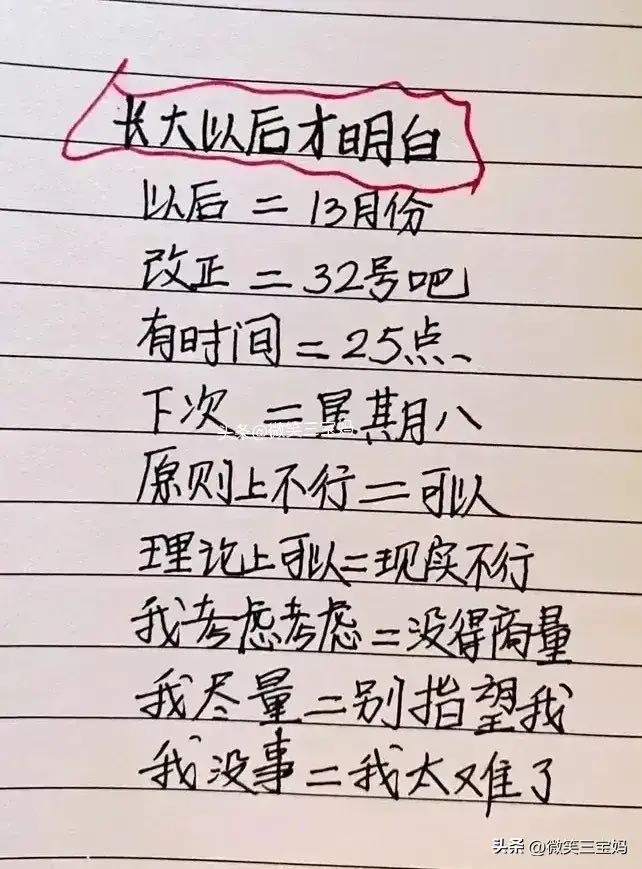 长大以后才明白
以后=13月份
改正=32号吧
有时间=25点
下次=星期月八
头条@微笑三宝妈
原则上不行=可以
理论上可以=现实不行
我考虑考虑=没得商量
我尽量=别指望我
我没事=我太难了
头条 @微笑三宝妈